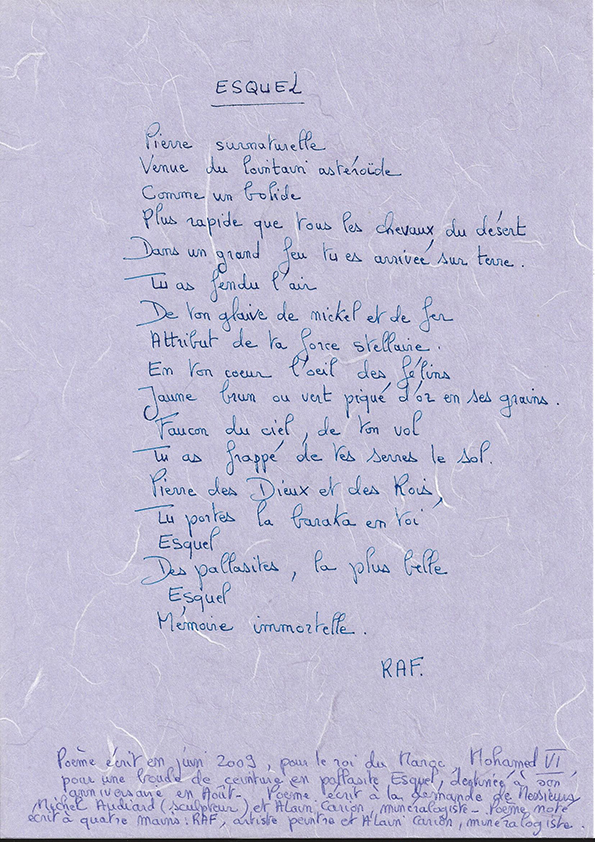 ESQUEL
Pierre surnaturelle
Venue du lointain astéroïde
Comme un bolide
Plus rapide que tous les chevaux du désert
Dans un grand feu tu es arrivée sur terre.
Tu as fendu l'air
De ton glaive de nickel et de fer
Attribut de ta force stellaire.
En ton coeur l'oeil des félins
Jaune brun ou vert piqué d'or en ses grains.
Faucon du ciel, de ton vol
Tu as frappé de tes serres le sol.
Pierre des Dieux et des Rois,
Tu portes la baraka en toi
Esquel
Des pallasites, la plus belle
Esquel
Mémoire immortelle.
RAF.
Poème écrit en juin 2009, pour le roi du Maroc, Mohamed VI,
pour une boucle de ceinture en pallasite Esquel, destinée à son
anniversaire en Août - Poème écrit à la demande de Messieurs
Michel Audiard (sculpteur) et Alain Carion, minéralogiste - Poème note
écrit à quatre mains : RAF, artiste peintre et Alain Carion, minéralogiste.